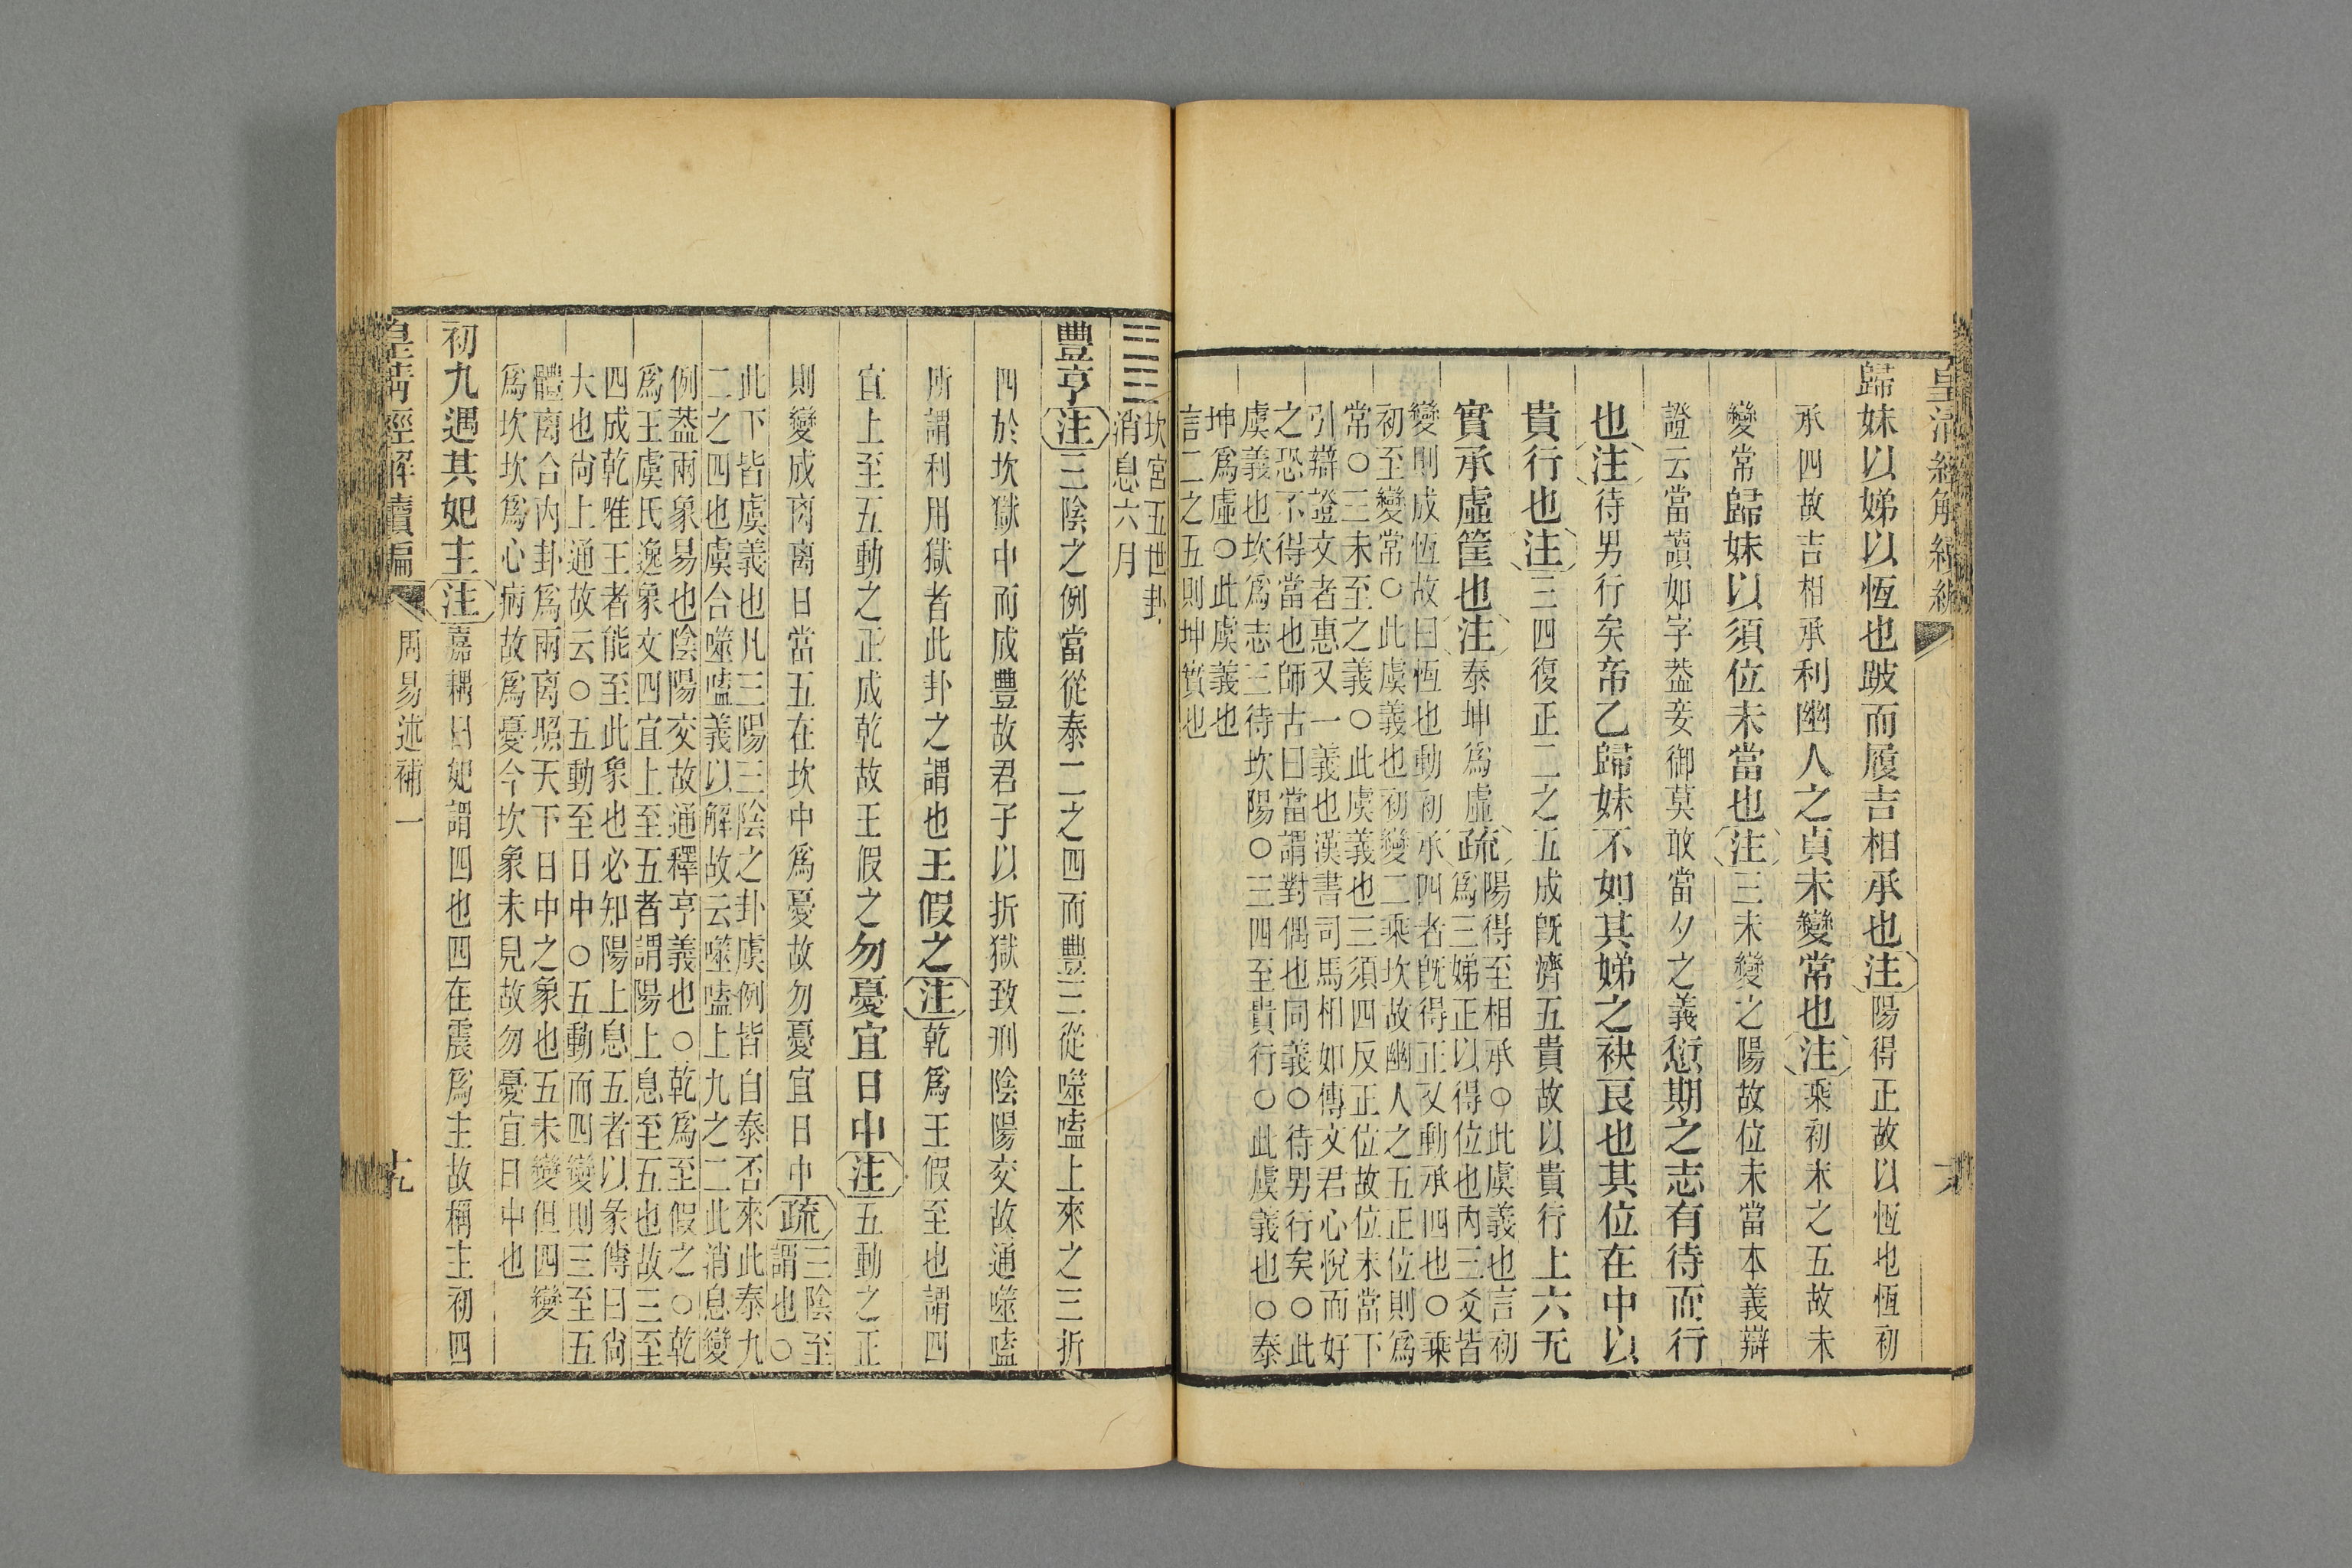 歸妹以娣以恆也跛而履吉相承也注陽得正故以恆也恆初
承四故吉相承利幽人之貞未變常也注乘初未之五故未
變常歸妹以須位未當也注三未變之陽故位未當本義辯
證云當讀如字葢妾御莫敢當夕之義愆期之志有待而行
也注待男行矣帝乙歸妹不如其娣之袂良也其位在中以
貴行也注三四復正二之五成旣濟五貴故以貴行上六无
實承虛筐也注泰坤爲虛疏陽得至相承○此虞義也言初
爲三娣正以得位也內三爻皆
變則成恆故曰恆也動初承四者旣得正又動承四也○乘
初至變常○此虞義也初變二乘坎故幽人之五正位則爲
常○三未至之義○此虞義也三須四反正位故位未當下
引辯證文者惠又一義也漢書司馬相如傳文君心悅而好
之恐不得當也師古曰當謂對偶也同義○待男行矣○此
虞義也坎爲志三待坎陽○三四至貴行○此虞義也○泰
坤爲虛○此虞義也
言二之五則坤實也
坎宮五世卦
消息六月
豐亨注三陰之例當從泰二之四而豐三從噬嗑上來之三折
四於坎獄中而成豐故君子以折獄致刑陰陽交故通噬嗑
所謂利用獄者此卦之謂也王假之注乾爲王假至也謂四
宜上至五動之正成乾故王假之勿憂宜日中注五動之正
則變成离離日當五在坎中爲憂故勿憂宜日中疏三陰至
謂也○
此下皆虞義也凡三陽三陰之卦虞例皆自泰否來此泰九
二之四也虞合噬嗑義以解故云噬嗑上九之二此消息變
例葢兩象易也陰陽交故通釋亨義也○乾爲至假之○乾
爲王虞氏逸象文四宜上至五者謂陽上息至五也故三至
四成乾唯王者能至此象也必知陽上息五者以彖傳曰尙
大也尙上通故云○五動至日中○五動而四變則三至五
體离合內卦爲兩离照天下日中之象也五未變但四變
爲坎坎爲心病故爲憂今坎象未見故勿憂宜日中也
初九遇其妃主注嘉耦曰妃謂四也四在震爲主故稱主初四
皇清經解續編
周易述補一